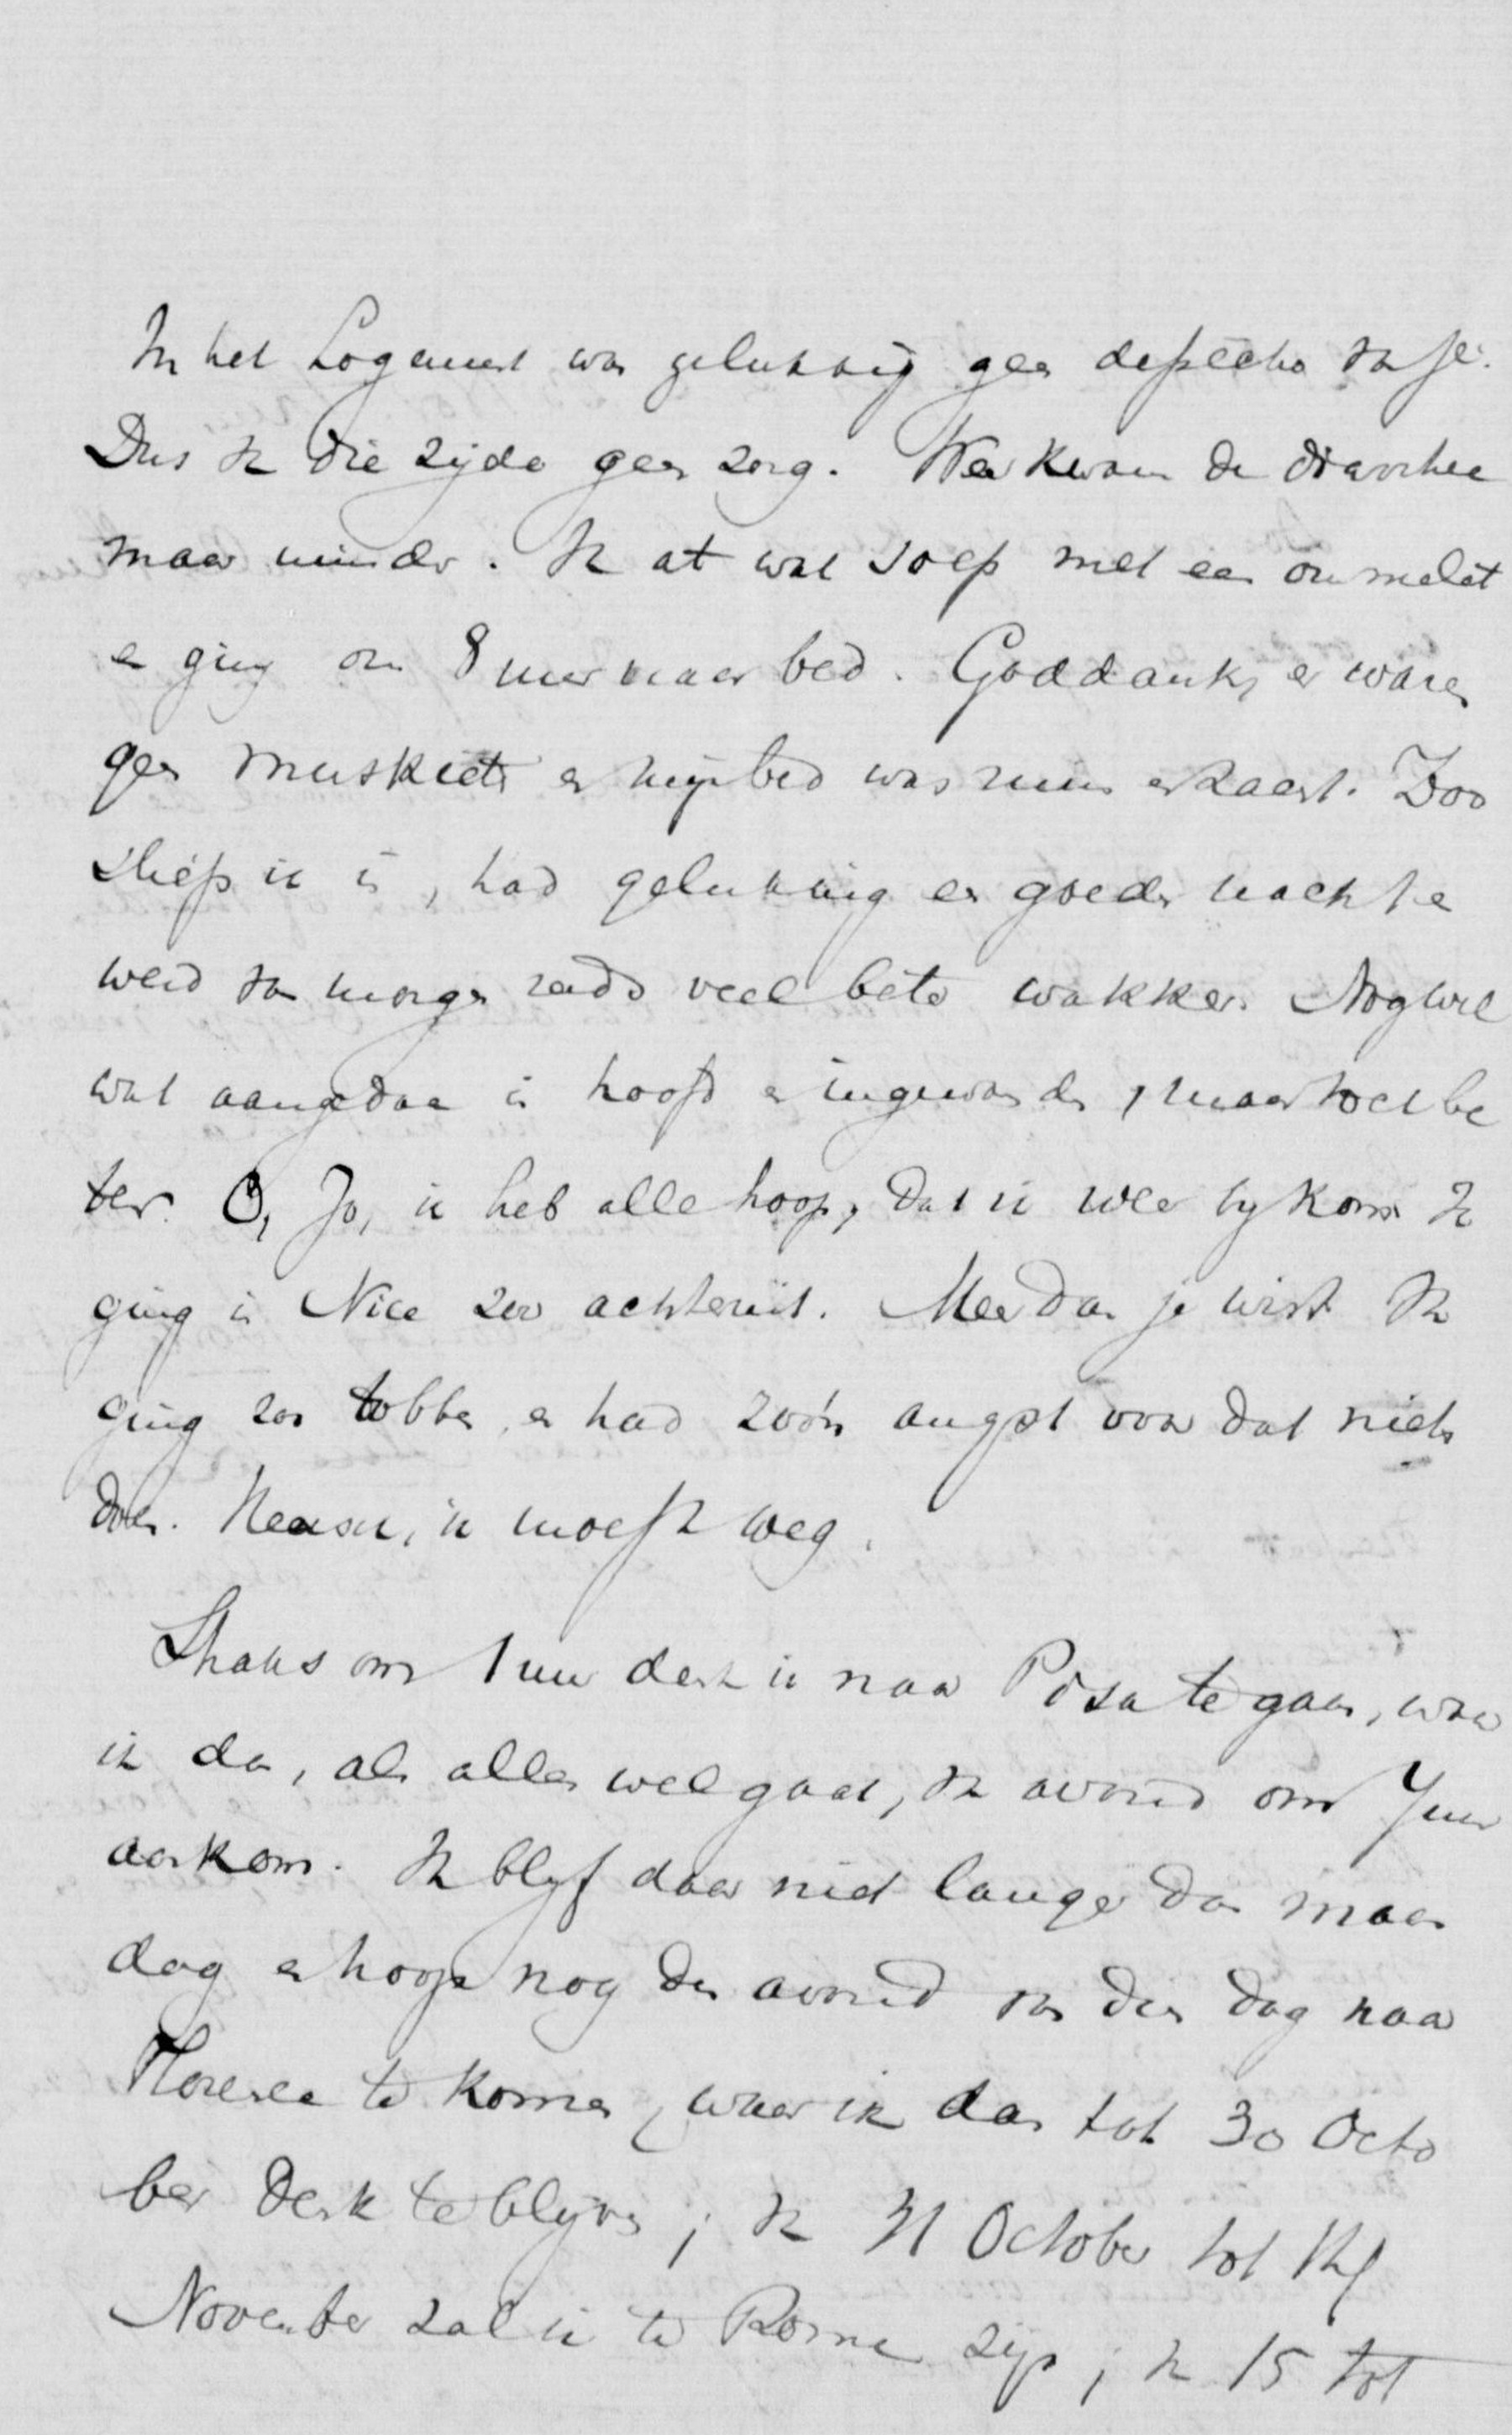 In het Logement was gelukkig geen depêche van je.
Dus van die zijde geen zorg. Wer kwam de diarrhee
maar minder. Ik at wat soep met een oumelet
en ging om 8 uur naar bed. Goddank, er waren
geen muskieten en mijn bed was ruim en zacht. Zoo
sliep ik in, had gelukkig een goeden nacht en
werd van morgen reeds veel beter wakker. Nog wel
wat aangedaan in hoofd en ingewanden, maar toch be
ter. O, Jo, ik heb alle hoop, dat ik weer bykom. Ik
ging in Nice zoo achteruit. Meer dan je wist. Ik
ging zoo tobben en had zoo'n angst voor dat niets
doen. Heusch, ik moest weg.
Straks om 1 uur denk ik naar Pisa te gaan, waar
ik dan, als alles wel gaat, van avond om 7 uur
aankom. Ik blyf daar niet langer dan maan
dag en hoop nog den avond van dien dag naar
Florence te komen, waar ik dan tot 30 Octo
ber denk te blyven; van 31 October tot 14
November zal ik te Rome zijn; van 15 tot